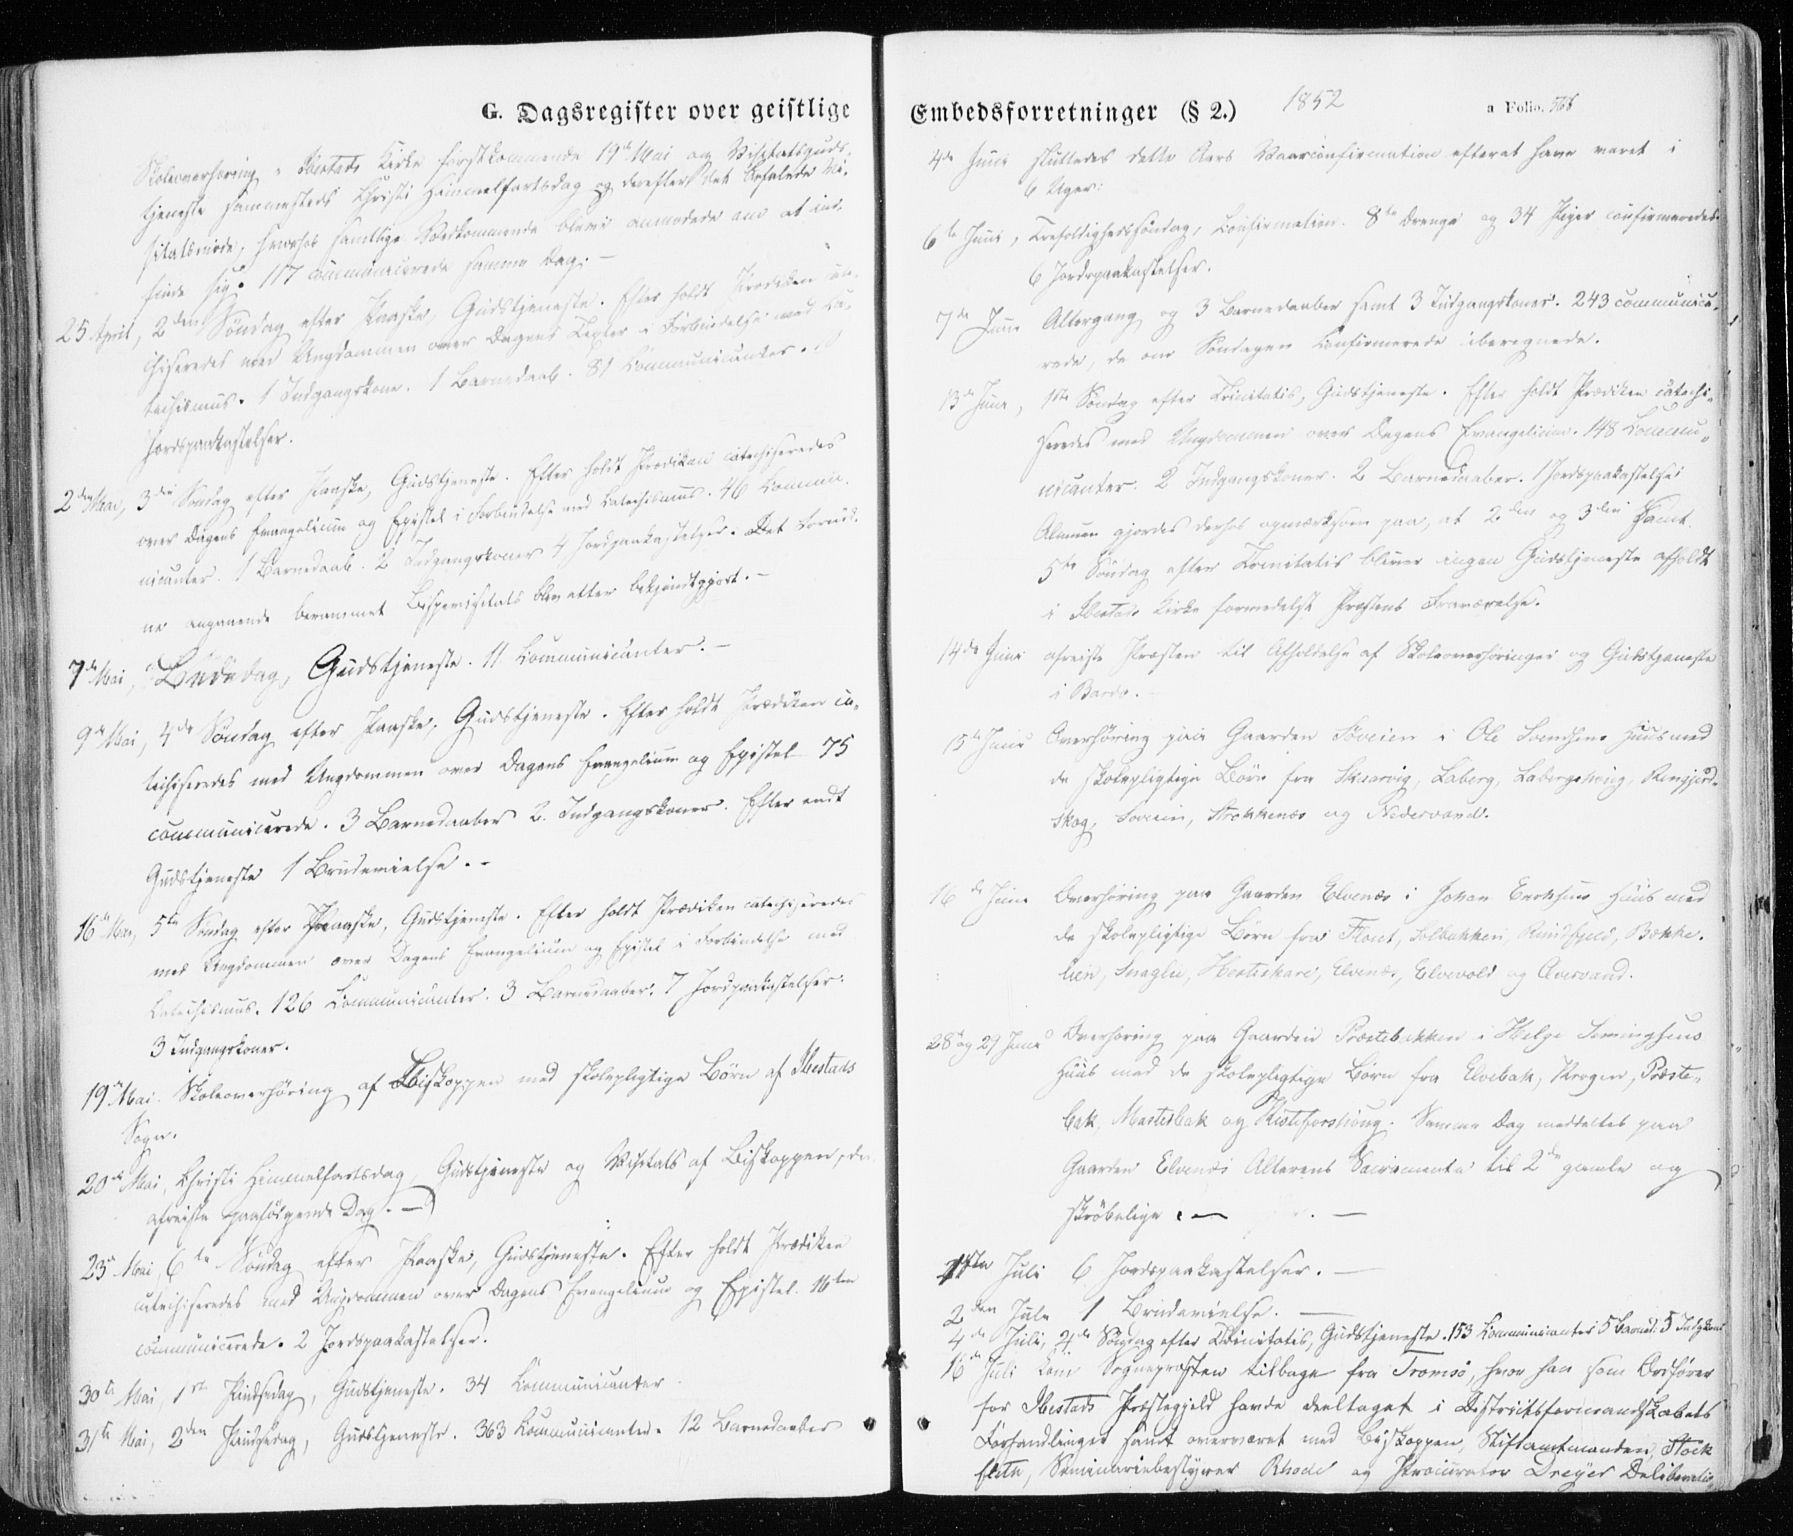 G. Dagsregister over geistlige
Skoleoverhøring i Ibestads Kirke førstkommende 19de Mai og Visitatsguds-
tjeneste sammesteds Christi Himmelfartsdag og derefter det befalede Vi-
sitatsmøde, hvorhos samtlige Vedkommende bleve anmodede om at ind-
finde sig. 117 communicerede samme Dag. —
25 April, 2den Søndag efter Paaske, Gudstjeneste. Efter holdt Prædiken ca-
thiseredes med Ungdommen over Dagens Texter i Forbindelse med Ca-
techismus. 1 Indgangskone. 1 Barnedaab. 81 Communicantes.
Jordspaakastelser.
2den Mai, 3die Søndag efter Paaske, Gudstjeneste. Efter holdt Prædiken catechiseredes
over Dagens Evangelium og Epistel i Forbindelse med Catechismus. 46 Commu-
nicanter. 1 Barnedaab. 2 Indgangskoner 4 Jordpaakastelser. Det fornød-
ne angaaende berammet Bispevisitats blev atter bekjendtgjort. —
7de Mai, Bededag, Gudstjeneste. 11 Communicanter. —
9de Mai, 4de Søndag efter Paaske, Gudstjeneste. Efter holdt Prædiken ca-
techiseredes med Ungdommen over Dagens Evangelium og Epistel 75
communicerede. 3 Barnedaaber 2. Indgangskoner. Efter endt
Gudstjeneste 1 Brudevielse. -
16de Mai, 5te Søndag efter Paaske, Gudstjeneste. Efter holdt Prædiken catechiseredes
med Ungdommen over Dagens Evangelium og Epistel i Forbindelse med
Catechismus. 126 Communicanter. 3 Barnedaaber. 7 Jordspaakastelser.
3 Indgangskoner.
19de Mai. Skoleoverhøring af Biskoppen med skolepligtige Børn af Ibestads
Sogn.
20de Mai, Christi Himmelfartsdag, Gudstjeneste og Visitats af Biskoppen, der
afreiste paafølgende Dag. —
23de Mai, 6te Søndag efter Paaske, Gudstjeneste. Efter holdt Prædiken
catechiseredes med Ungdommen over Dagens Evangelium og Epistel. 16ten
communicerede. 2 Jordspaakastelser.
30te Mai, 1ste Pindsedag, Gudstjeneste. 34 Communicanter.
31te Mai, 2den Pindsedag, Gudstjeneste. 363 Communicanter. 12 Barnedaaber
Embedsforretninger (§ 2.) 1852 a Folio. 568
4de Juni sluttedes dette Aars Vaarconfirmation efterat have varet i
6 Uger.
6te Juni, Trefoldighedssøndag, Confirmation. 8te Drenge og 34 Piger confirmeredes.
6 Jordspaakastelser.
7de Juni Altergang og 3 Barnedaaber samt 3 Indgangskoner. 243 communice-
rede, de om Søndagen Confirmerede iberegnede.
13de Juni, 1ste Søndag efter Trinitatis, Gudstjeneste. Efter holdt Prædiken catechi-
seredes med Ungdommen over Dagens Evangelium. 148 Commu-
nicanter. 2 Indgangskoner. 2 Barnedaaber. 1 Jordspaakastelse
Almuen gjordes derhos opmærksom paa, at 2den og 3die samt
5te Søndag efter Trinitatis bliver ingen Gudstjeneste afholdt
i Ibestads Kirke formedelst Præstens Fraværelse.
14de Juni afreiste Præsten til Afholdelse af Skoleoverhøringer og Gudstjeneste
i Bardo.
15de Juni Overhøring paa Gaarden Soveien i Ole Svendsens Huus med
de skolepligtige Børn fra Skjærvig, Laberg, Labergshoug,
skog, Soveien, Strokkenæs og Nedervand.
16de Juni Overhøring paa Gaarden Elvenæs i Johan Eriksens Huus med
de skolepligtige Børn fra Floret, Solbakken, Rundfjeld, Bække-
lien, Snaglie, Elvenæs, Elvevold og Øvervand.
28de og 29 Juni Overhøring paa Gaarden Præstebakken i Helge Simingsens
Huus med de skolepligtige Børn fra Elvebak, Krogen, Præste-
bak, Mastesbak og Kistefoshoug. Samme Dag meddeltes paa
Gaarden Elvenæs Alterens Sacramente til 2de gamle og
skrøbelige. —
1ste Juli 6 Jordspaakastelser. —
2den Juli 1 Brudevielse. —
4de Juli, 4de Søndag efter Trinitatis, Gudstjeneste. 153 Communicanter 5 Barned. 5 Indgkone
16de Juli kom Sognepræsten tilbage fra Tromsø, hvor han som Ordfører
for Ibestads Præstegjeld havde deeltaget i Districtsformandskabets
Forhandlinger samt overværet med Biskoppen, Stiftamtmanden, Stock
fleth, Seminariebestyrer Rhode og Procurator Dreyer Deliberatio